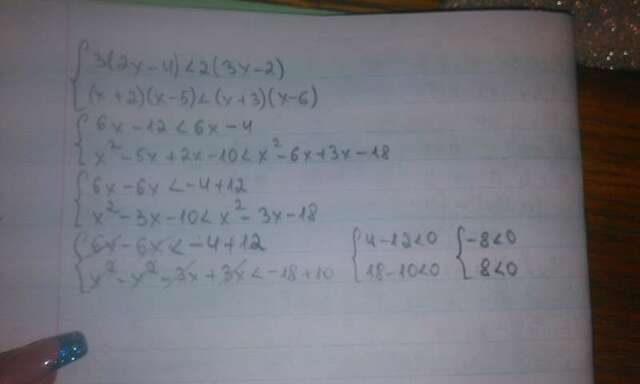 3(2x-4)<2(3x-2)
(x+2)(x-5)<(x+3)(x-6)
6x-12<6x-4
x²-5x+2x-10<x²-6x+3x-18
6x-6x<-4+12
x²-3x-10<x²-3x-18
6x-6x<-4+12
x²-x²-3x+3x<-18+10
4-12<0
18-10<0
-8<0
8<0